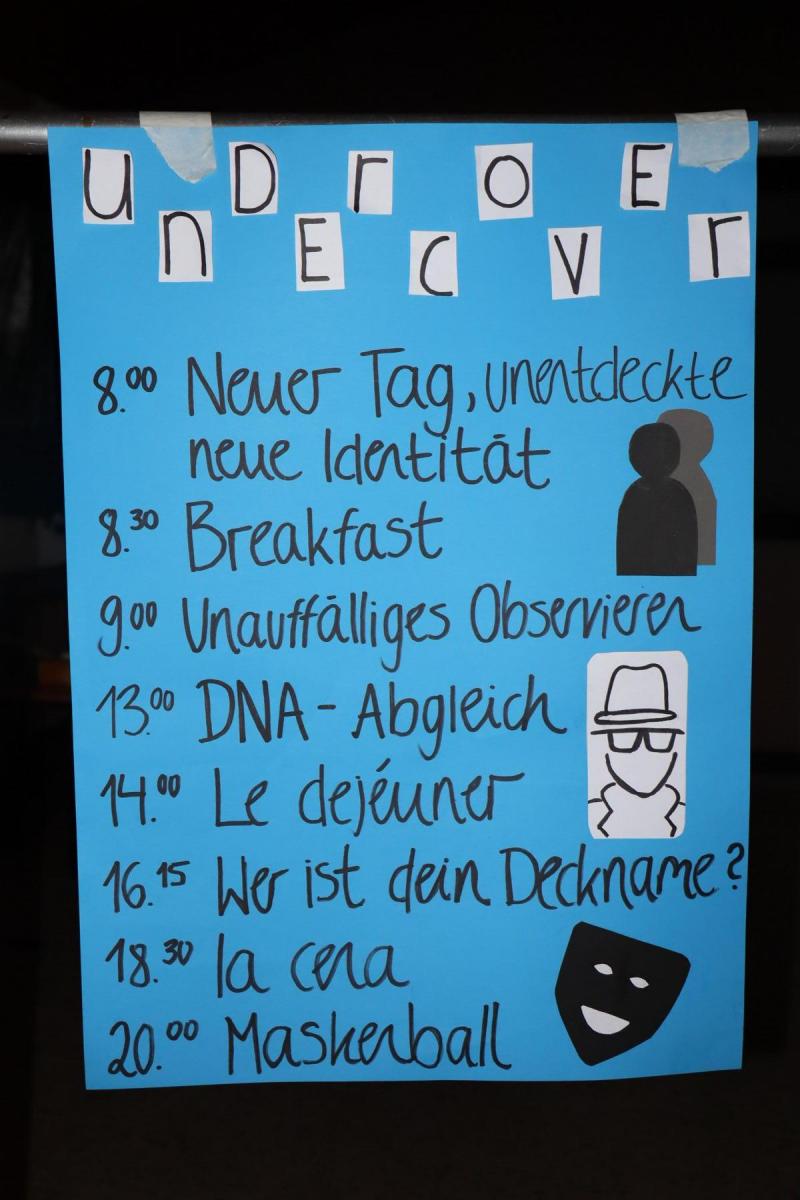 unDErcovEr
8.00 Neuer Tag, unentdeckte
neue Identität
8.30 Breakfast
9.00 Unauffälliges Observieren
13.00 DNA-Abgleich
14.00 Le dejéuner
16.15 Wer ist dein Deckname?
18.30 la cena
20.00 Maskenball